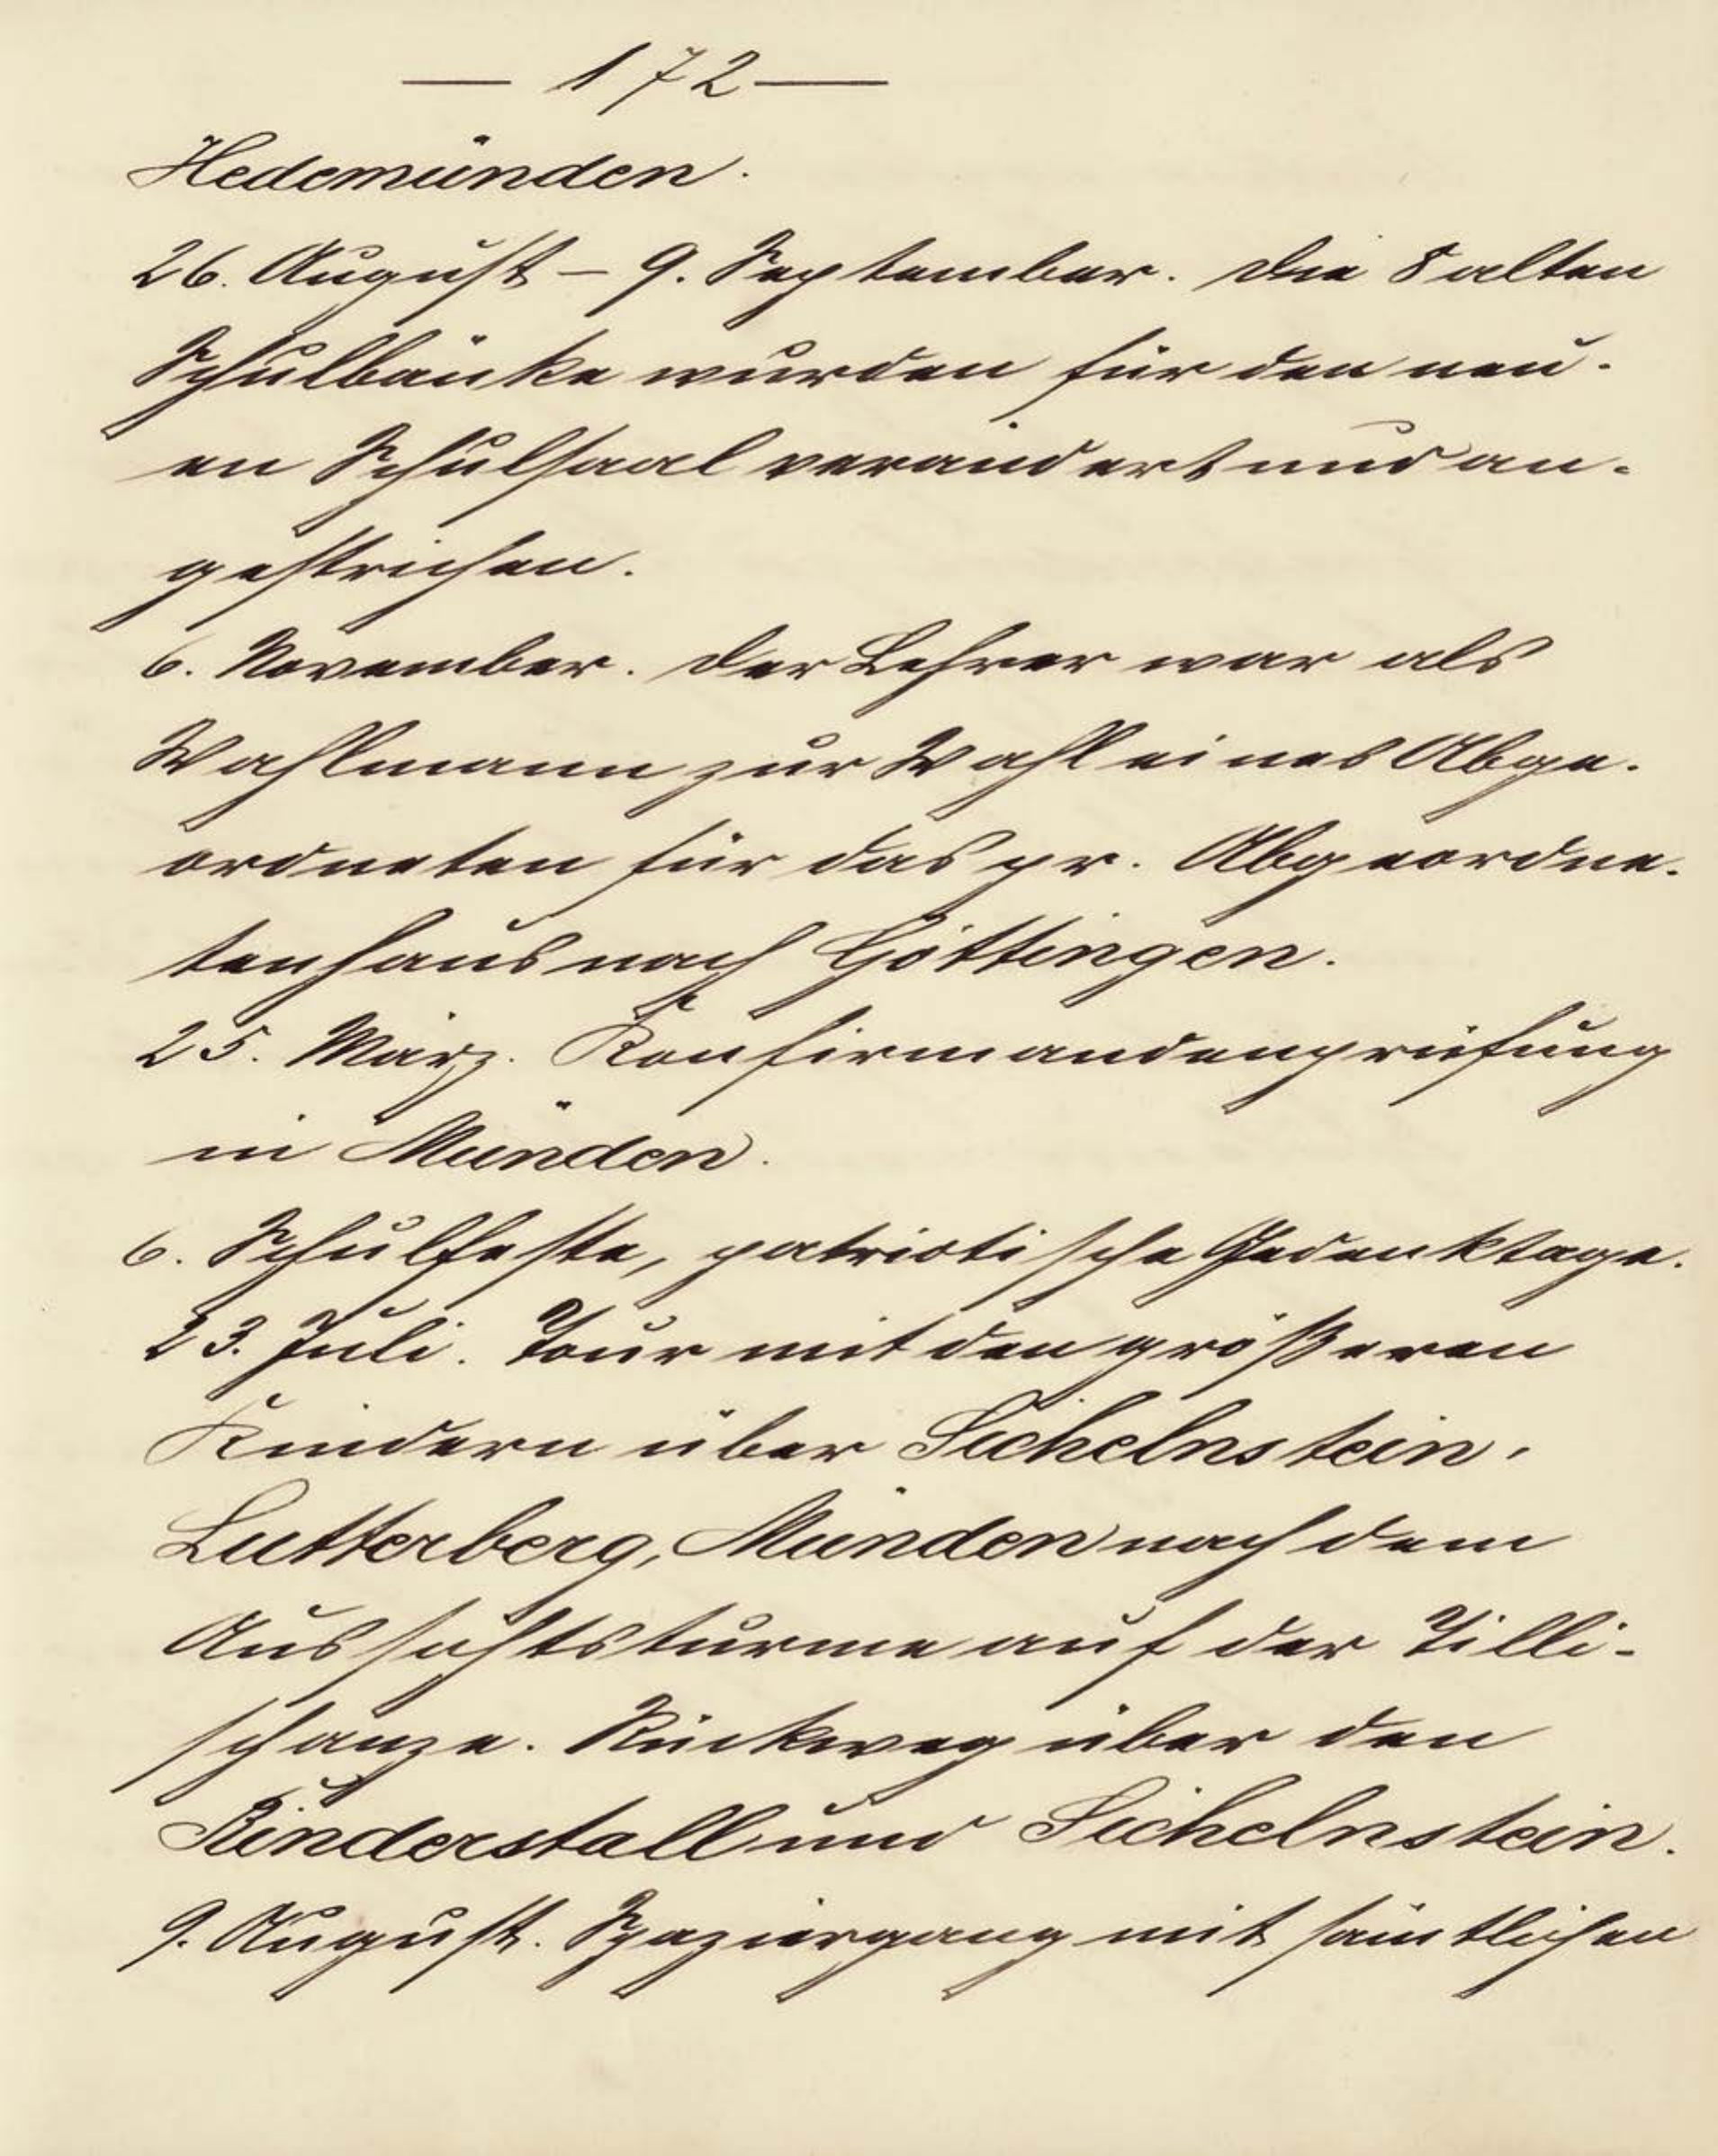 — 172 —
Hedemünden.
26. August – 9. September. Die 8 alten
Schulbänke wurden für den neu-
en Schulsaal verändert und an-
gestrichen.
6. November. Der Lehrer war als
Wahlmann zur Wahl eines Abge-
ordneten für das pr. Abgeordne-
tenhaus nach Göttingen.
25. März. Konfirmandenprüfung
in Münden.
6. Schulfeste, patriotische Gedenktage.
23. Juli. Tour mit den größeren
Kindern über Sichelnstein,
Lutterberg, Münden nach dem
Aussichtsturme auf der Tilli-
schanze. Rückweg über den
Rinderstall und Sichelnstein.
9. August. Spaziergang mit sämtlichen